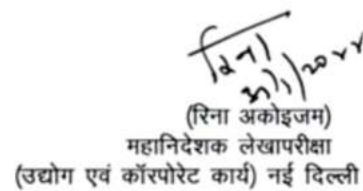 रिना
(रिना अकोइजम)
महानिदेशक लेखापरीक्षा
(उद्योग एवं कॉरपोरेट कार्य) नई दिल्ली